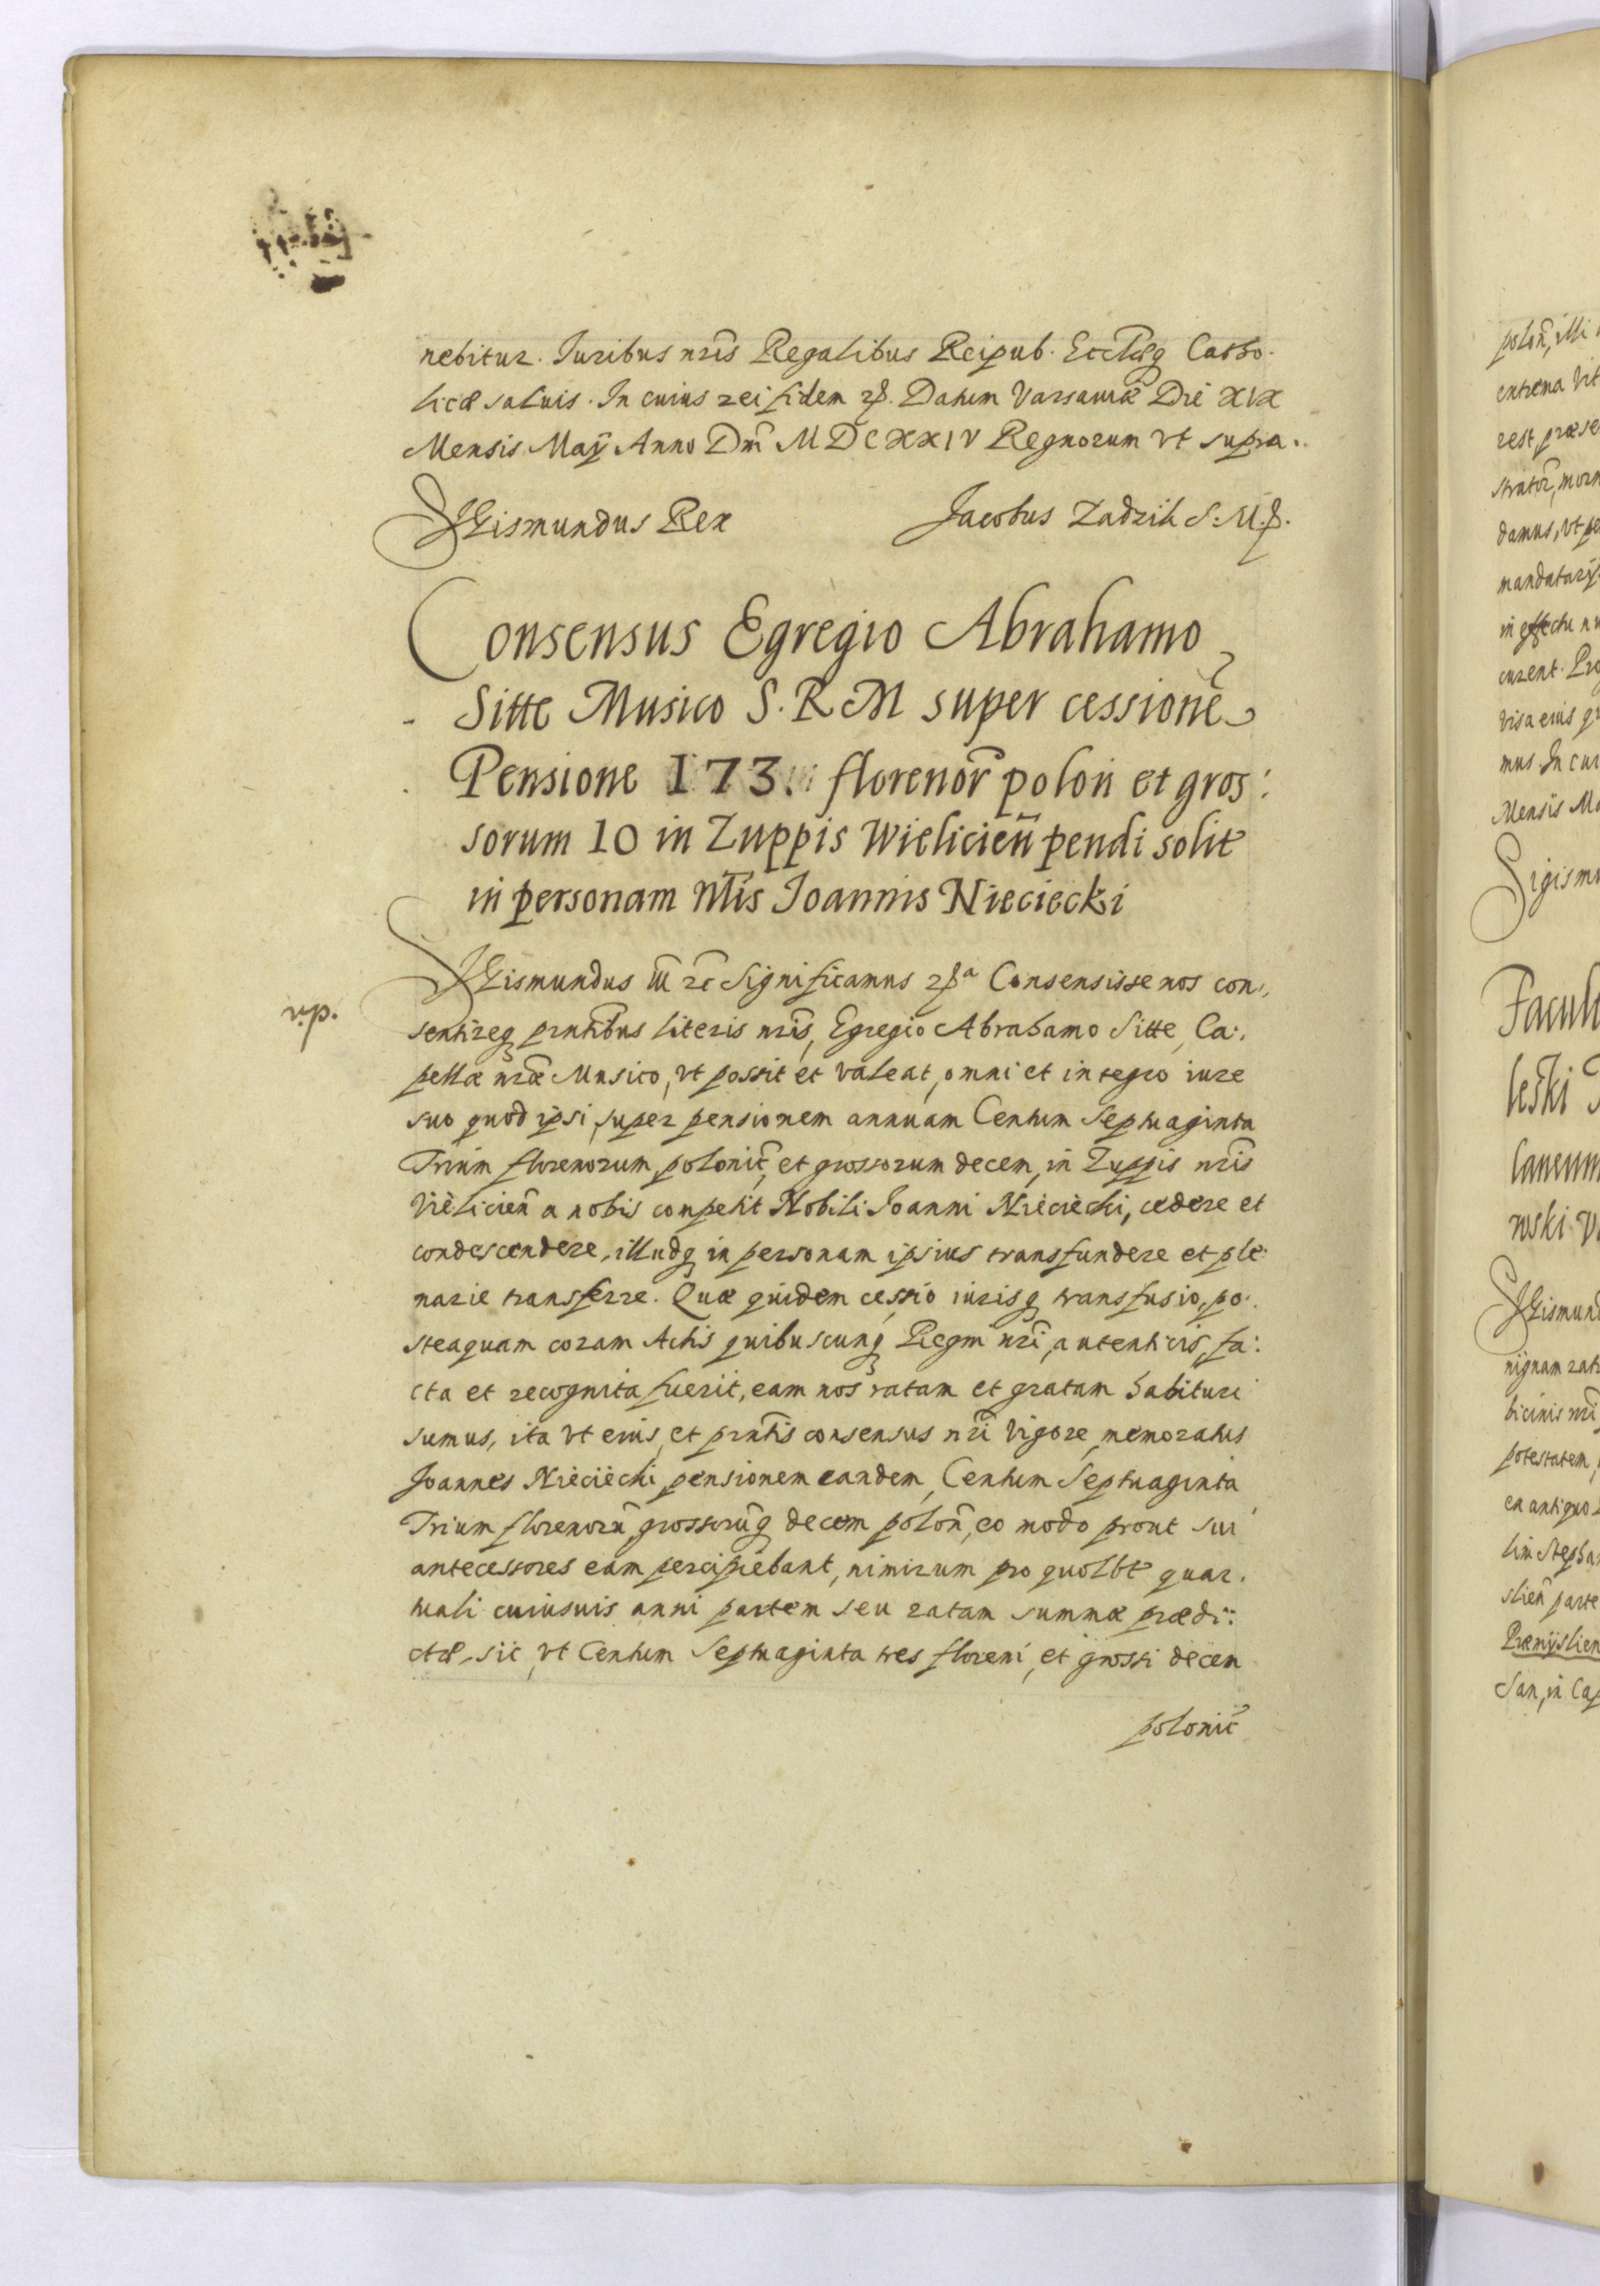 nebitur. Iuribus nr̃is Regalibus Reipub. Eccl̃æq̃ Catho.
licæ saluis. In cuius rei fidem ꝛ̃ꝑ. Datum Varsauiæ Die XIX
Mensis Maÿ Anno Dm̃ MDCXXIV Regnorum vt supra.
SIGismundus Rex Jacobus Zadzik S: M. ꝑ.
Consensus Egregio Abrahamo
Sitte Musico S. R M super cessionẽ
Pensione 173. florenor̃ polon̄ et gros:
sorum 10 in Zuppis Wielicien̄ pendi solit
in personam Mc̃is Joannis Nieciecki
SIGismundus III ꝛc̃ Significamus ꝛꝑᵃ Consensisse nos con,
r. p.
sentireq̃ prñtibus literis nr̃is, Egregio Abrahamo Sitte, Ca:
pellæ nr̃æ Musico, vt possit et valeat, omni et integro iure
suo quod ipsi, super pensionem annuam Centum Septuaginta
Trium florenorum, polonic̃, et grossorum decem, in Zuppis nr̃is
Vielicien̄ a nobis competit Nobili Joanni Nieciecki, cedere et
condescendere, illudq̃ in personam ipsius transfundere et ple:
narie transferre. Quæ quidem cessio iurisq̃ transfusio, po:
steaquam coram Actis quibuscunq̃ Regni nr̃i, autenticis, fa:
cta et recognita fuerit, eam nos ratam et gratam habituri
sumus, ita vt eius, et prñtis consensus nr̃i vigore, memoratus
Joannes Nieciecki pensionem eandem, Centum Septuaginta
Trium florenorū, grossorūq̃ decem polon̄, eo modo prout sui
antecessores eam percipiebant, nimirum pro quolbt quar.
tuali cuiusuis anni partem seu ratam summæ prædi:
ctæ, sic, vt Centum Septuaginta tres floreni, et grossi decem
polonic̃